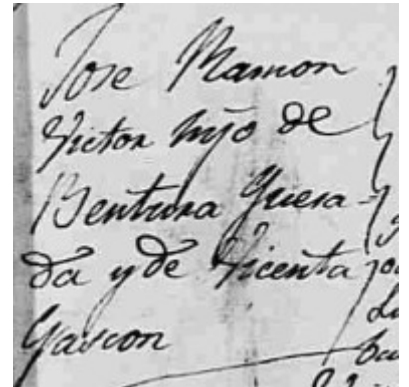 Jose Ramon
Victor hijo de
Bentura Quesa-
da y de Vicenta
Gascon